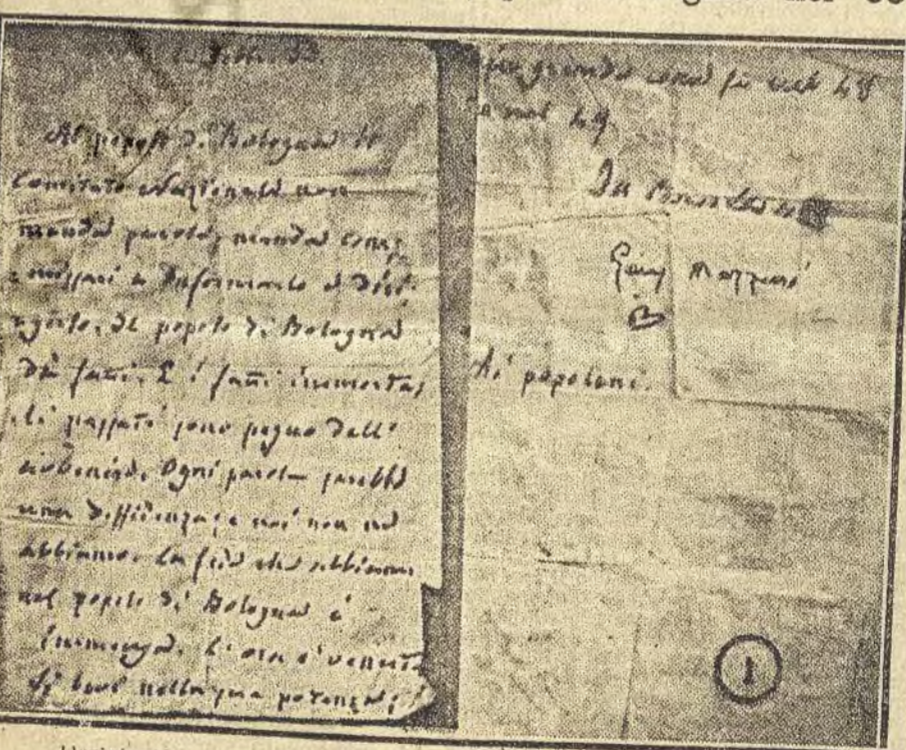 Al popolo di Bologna il
Comitato Nazionale non
manda parole, manda com=
=missari a informarlo e diri=
=gerlo. Il popolo di Bologna
dà fatti. E i fatti immorta=
=li passati sono pegno dell'
avvenire. Ogni parola sarebbe
una diffidenza; e noi non ne
abbiamo. La fede che abbiamo
nel popolo di Bologna è
immensa. L'ora è venuta
si levi nella sua potenza;
più grande che nel 48
e nel 49
Gius. Mazzini
Ai popolani.
1